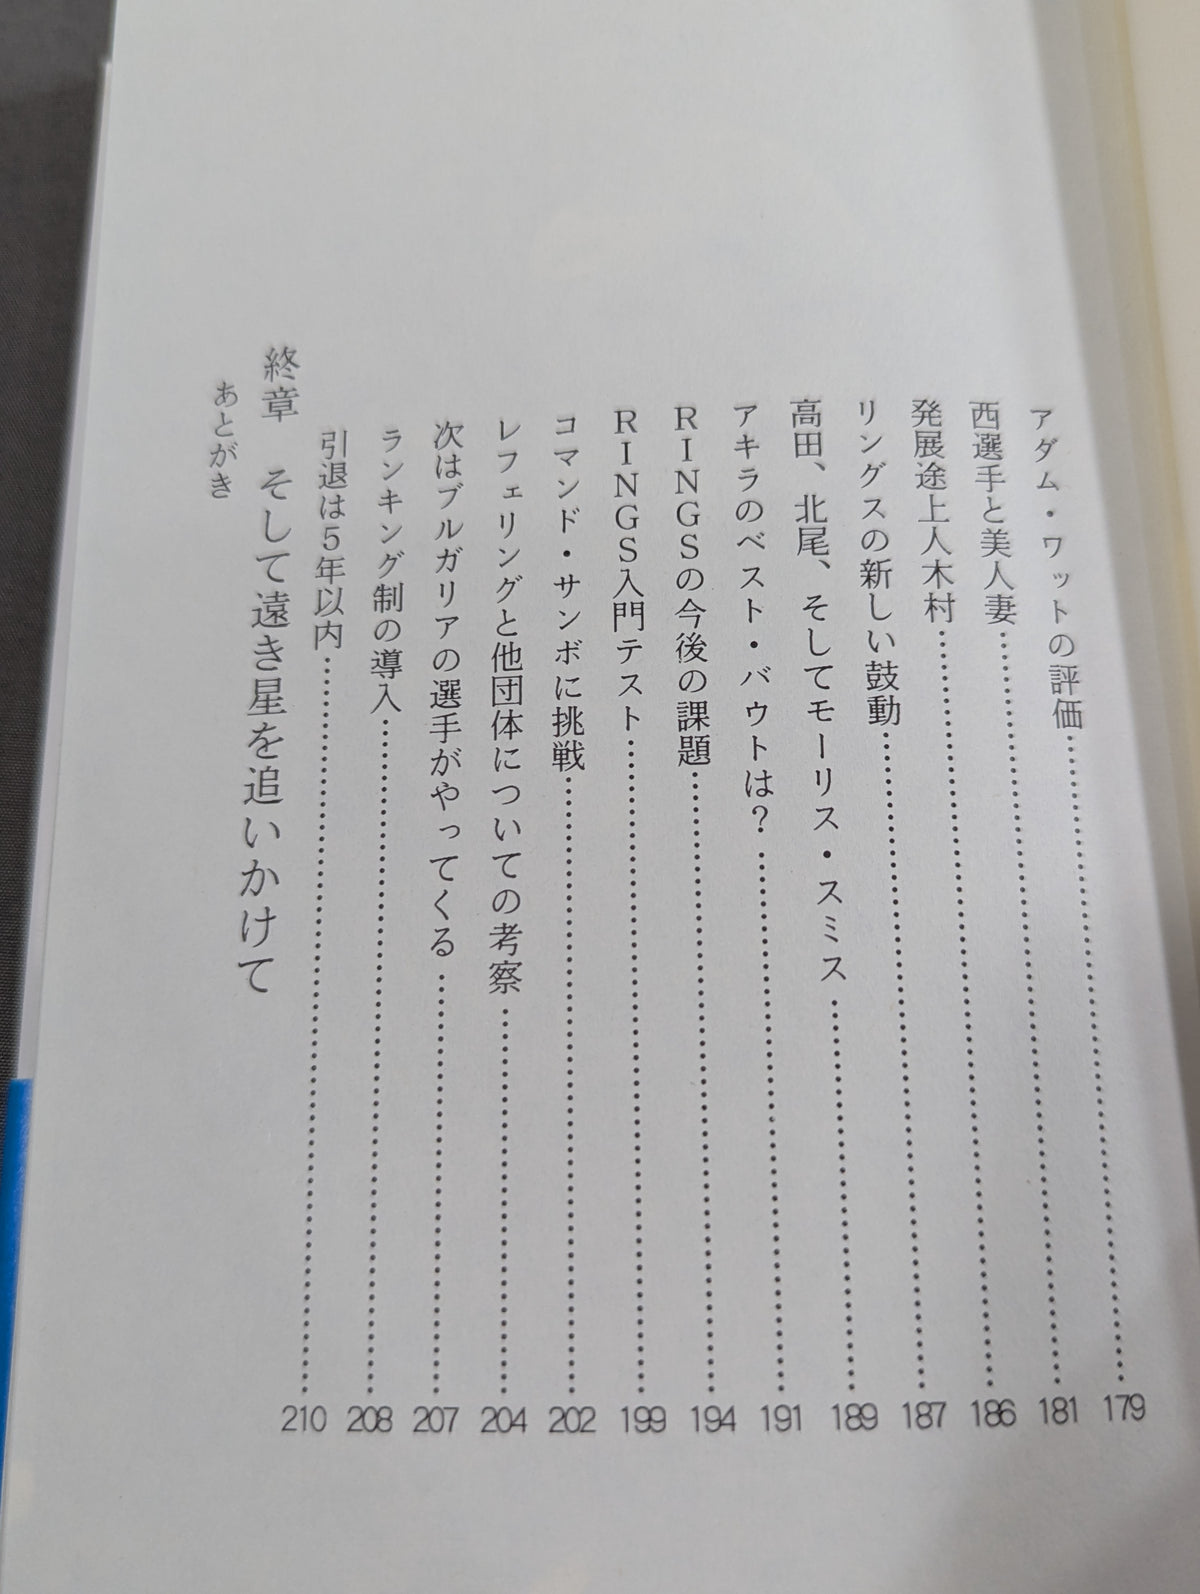 アダム・ワットの評価……179
西選手と美人妻……181
発展途上人木村……186
リングスの新しい鼓動……187
高田、北尾、そしてモーリス・スミス……189
アキラのベスト・バウトは？……191
RINGSの今後の課題……194
RINGS入門テスト……199
コマンド・サンボに挑戦……202
レフェリングと他団体についての考察……204
次はブルガリアの選手がやってくる……207
ランキング制の導入……208
引退は5年以内……210
終章 そして遠き星を追いかけて
あとがき